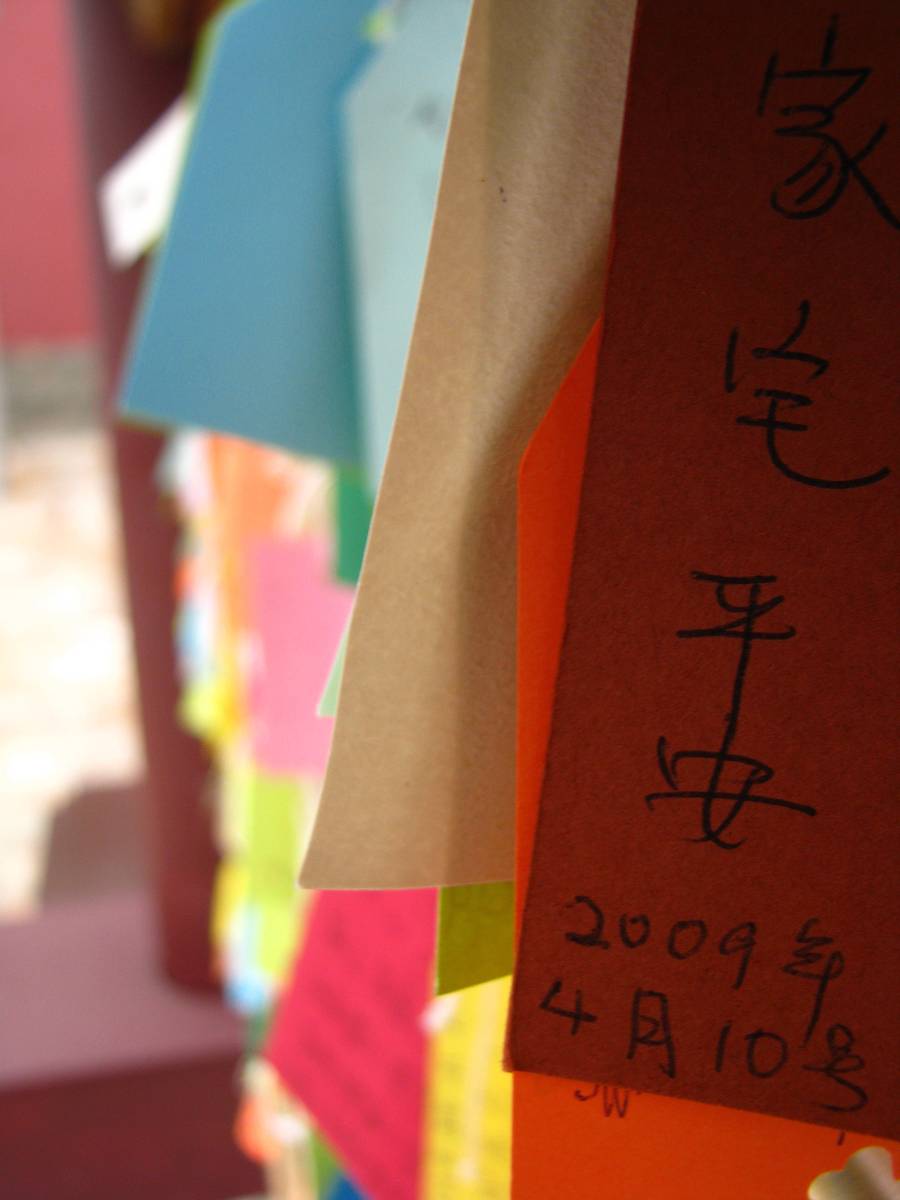 家宅平安
2009年
4月10号